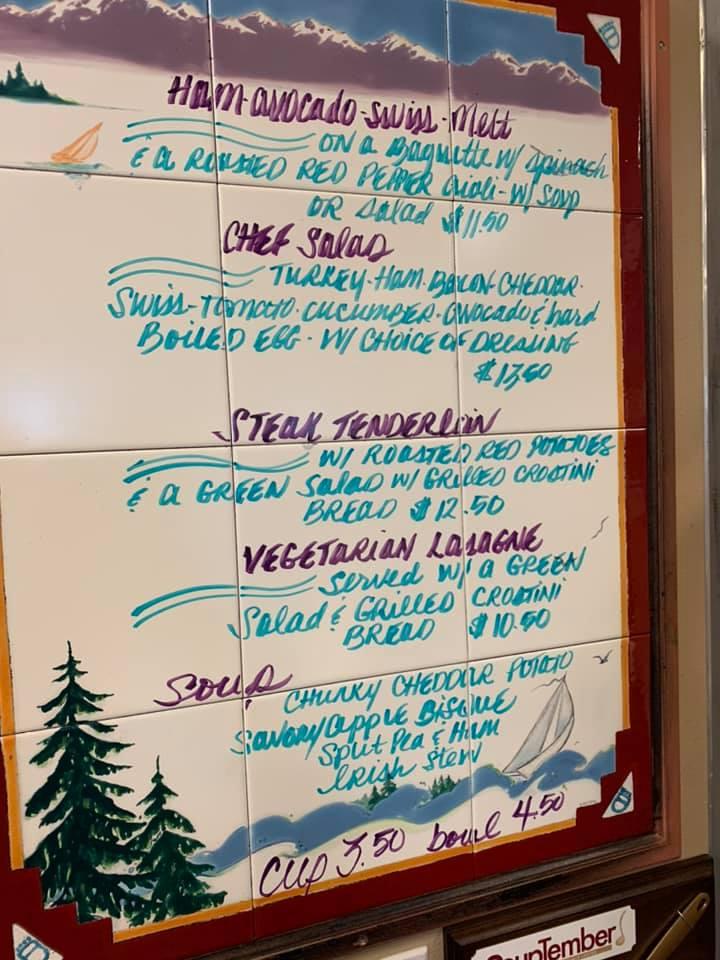 Ham-avocado-swiss-Melt
ON a Baguette W/ spinach
& a ROASTED RED PEPPER aioli-W/ Soup
OR Salad $11.50
CHEF Salad
TURKEY-Ham-BACON-CHEDDAR-
Swiss-Tomato-CUCUMBER-avocado & hard
Boiled EGG - W/ CHOICE OF DRESSING
$13,50
STEAK TENDERLOIN
W/ ROASTED RED POTATOES
& a GREEN Salad W/ GRILLED CROSTINI
BREAD $12.50
VEGETARIAN LASAGNE
Served W/ a GREEN
Salad & GRILLED CROSTINI
BREAD $10.50
SOUP
CHUNKY CHEDDAR POTATO
Savory apple BISQUE
Split Pea & Ham
Irish Stew
CUP 3.50 bowl 4.50
SoupTember